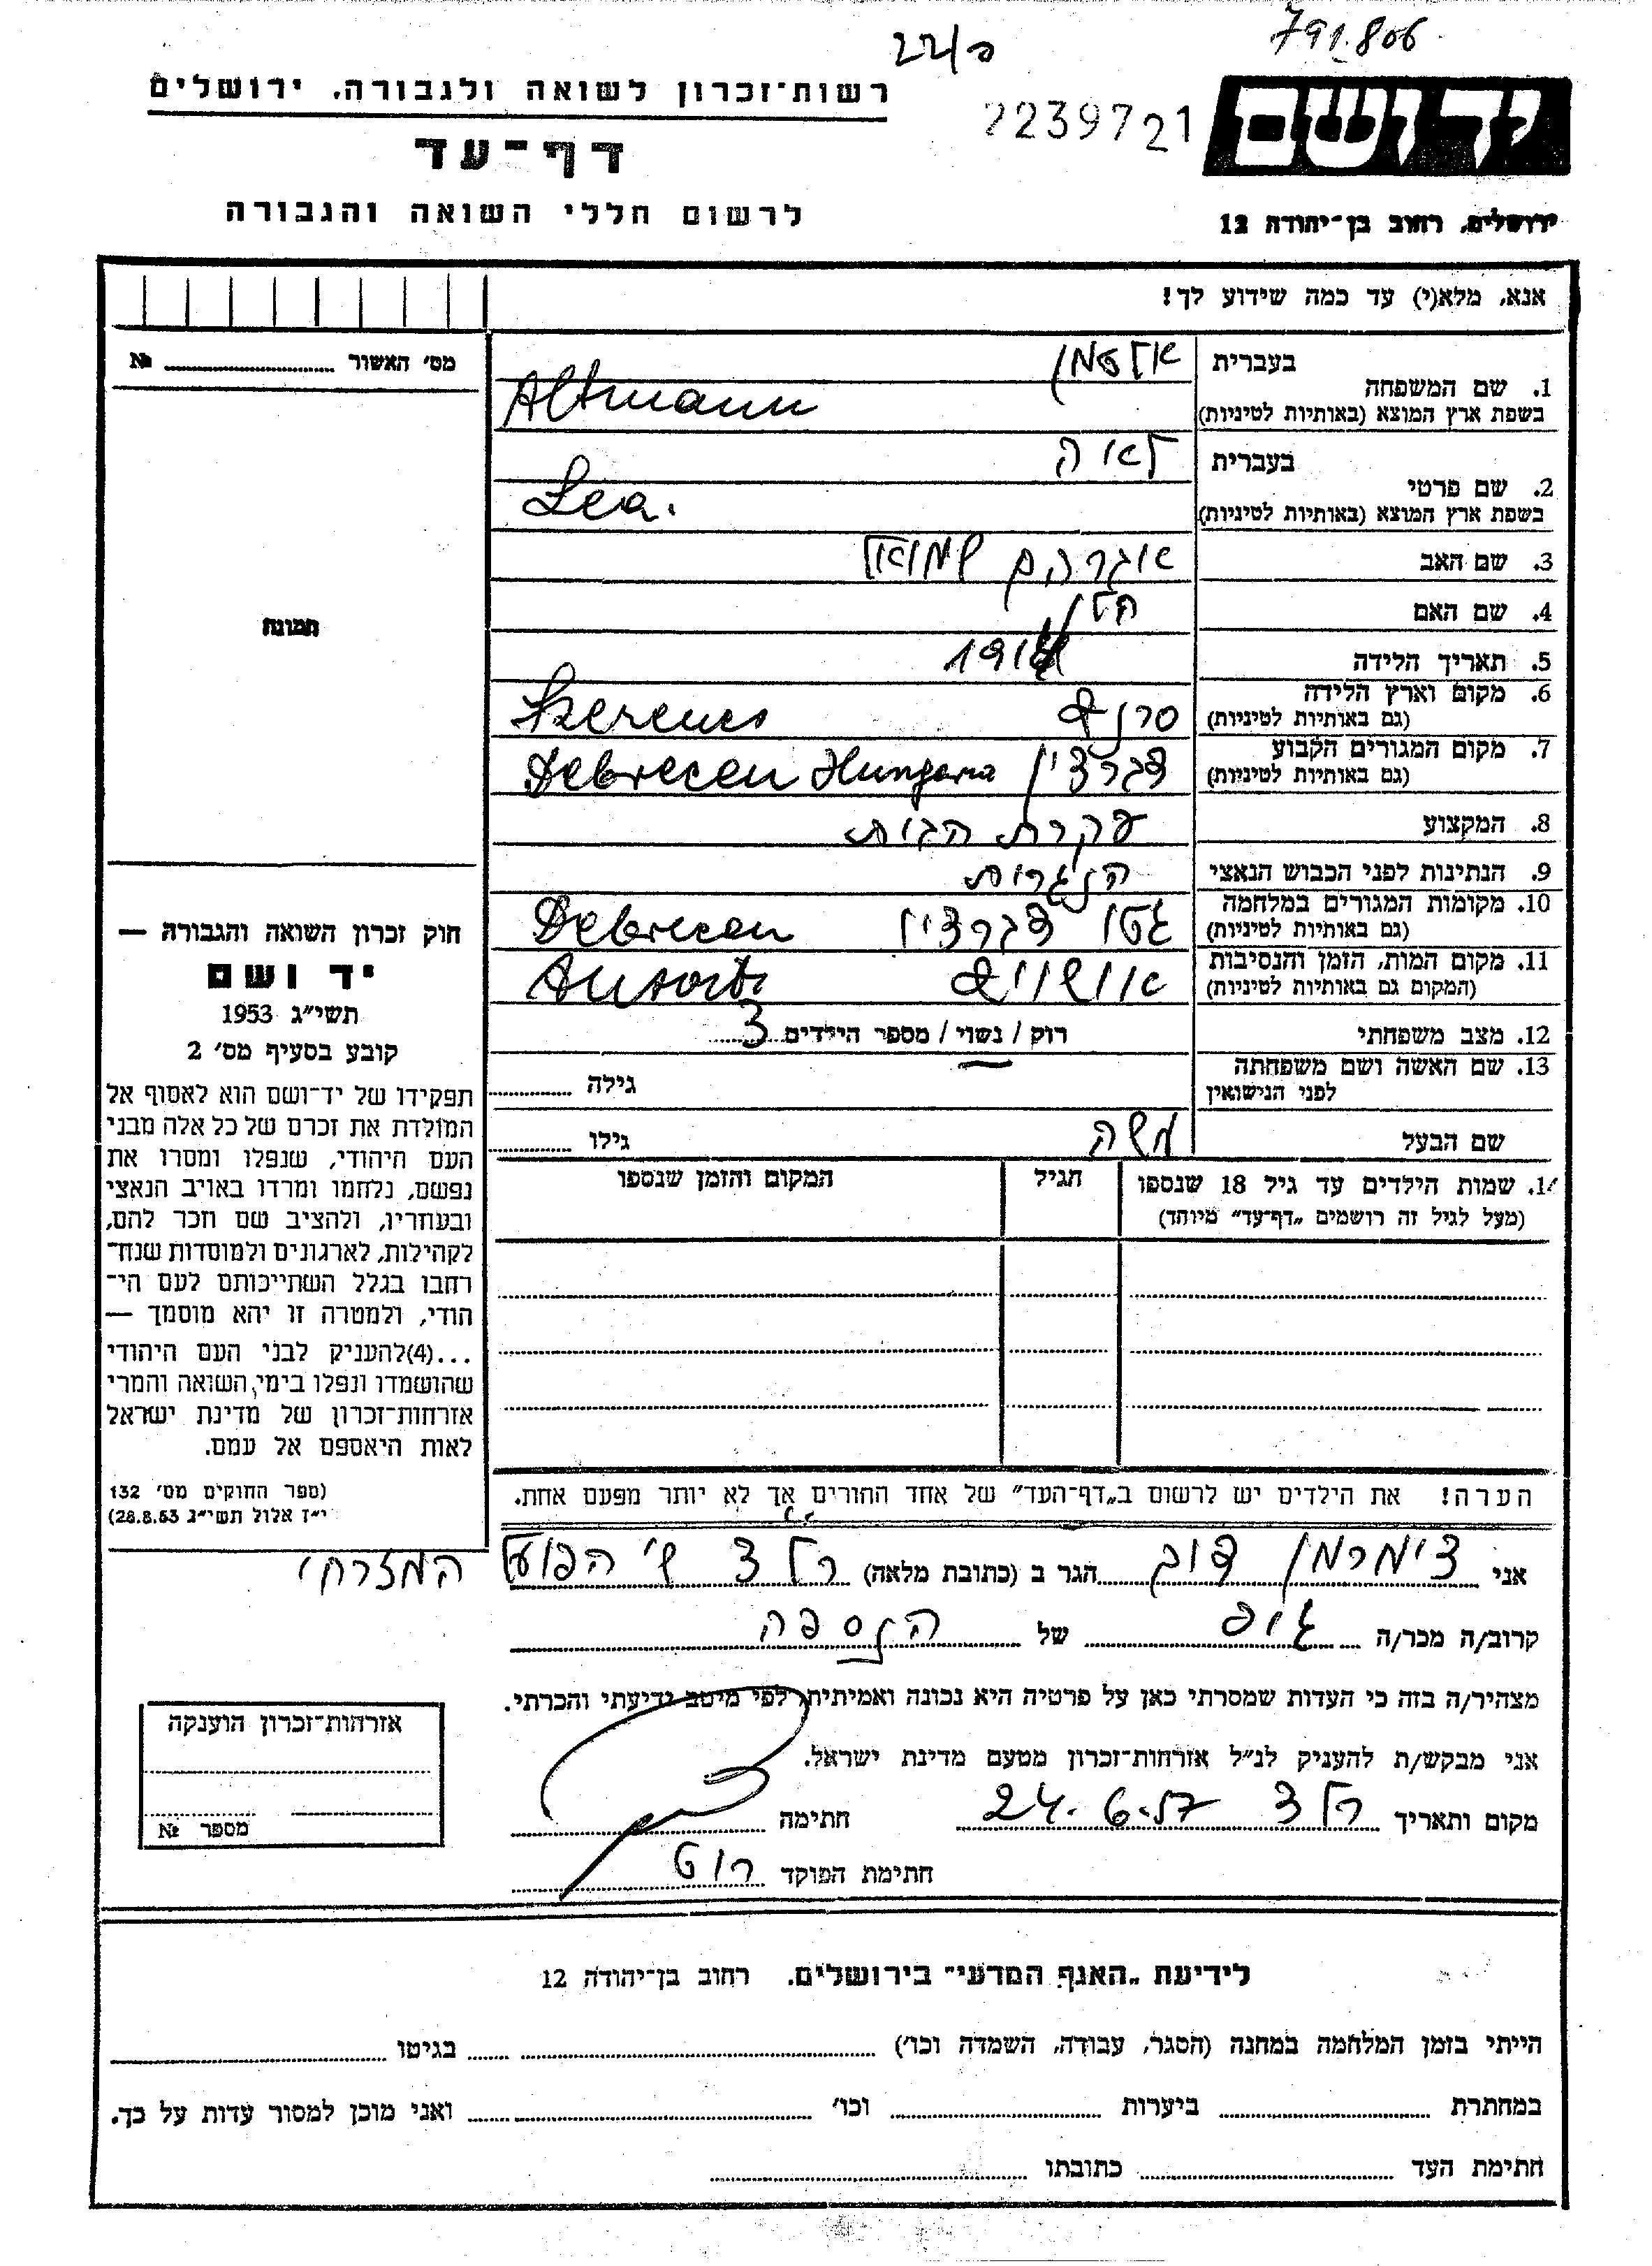 22/פ
791.806
רשות־זכרון לשואה ולגבורה, ירושלים
22397 21
יד ושם
דף־עד
לרשום חללי השואה והגבורה
ירושלים, רחוב בן־יהודה 12
אנא, מלא(י) עד כמה שידוע לך!
מס׳ האשור № 
בעברית אלטמן
1. שם המשפחה
בשפת ארץ המוצא (באותיות לטיניות) Altmann
בעברית לאה
2. שם פרטי
בשפת ארץ המוצא (באותיות לטיניות) Lea.
3. שם האב אברהם שמואל
4. שם האם
תמונה
5. תאריך הלידה
6. מקום וארץ הלידה
(גם באותיות לטיניות) סרנץ Szerencs
7. מקום המגורים הקבוע
(גם באותיות לטיניות) דברצין Debrecen Hungaria
8. המקצוע עקרת הבית
9. הנתינות לפני הכבוש הנאצי הונגרית
10. מקומות המגורים במלחמה
(גם באותיות לטיניות) גטו דברצין Debrecen
11. מקום המות, הזמן והנסיבות
(המקום גם באותיות לטיניות) אושויץ
12. מצב משפחתי רוק / נשוי / מספר הילדים 3
13. שם האשה ושם משפחתה
לפני הנישואין גילה
שם הבעל משה גילו
14. שמות הילדים עד גיל 18 שנספו
(מעל לגיל זה רושמים „דף־עד” מיוחד)
הגיל
המקום והזמן שנספו
חוק זכרון השואה והגבורה —
יד ושם
תשי״ג 1953
קובע בסעיף מס׳ 2
תפקידו של יד־ושם הוא לאסוף אל
המולדת את זכרם של כל אלה מבני
העם היהודי, שנפלו ומסרו את
נפשם, נלחמו ומרדו באויב הנאצי
ובעוזריו, ולהציב שם וזכר להם,
לקהילות, לארגונים ולמוסדות שנח־
רבו בגלל השתייכותם לעם הי־
הודי, ולמטרה זו יהא מוסמך —
...(4)להעניק לבני העם היהודי
שהושמדו ונפלו בימי השואה והמרי
אזרחות־זכרון של מדינת ישראל
לאות היאספם אל עמם.
(ספר החוקים מס׳ 132
י״ז אלול תשי״ג 28.8.53)
הערה! את הילדים יש לרשום ב„דף־העד” של אחד ההורים אך לא יותר מפעם אחת.
אני צימרמן דוב הגר ב (כתובת מלאה) רלצ ש׳ הפועל המזרחי
קרוב/ה מכר/ה גיס של הנספה
מצהיר/ה בזה כי העדות שמסרתי כאן על פרטיה היא נכונה ואמיתית, לפי מיטב ידיעתי והכרתי.
אני מבקש/ת להעניק לנ״ל אזרחות־זכרון מטעם מדינת ישראל.
מקום ותאריך רלצ 24.6.57 חתימה
חתימת הפוקד רוט
אזרחות־זכרון הוענקה
מספר №
לידיעת „האגף המדעי” בירושלים. רחוב בן־יהודה 12
הייתי בזמן המלחמה במחנה (הסגר, עבודה, השמדה וכו׳) בגיטו
במחתרת ביערות וכו׳ ואני מוכן למסור עדות על כך.
חתימת העד כתובתו